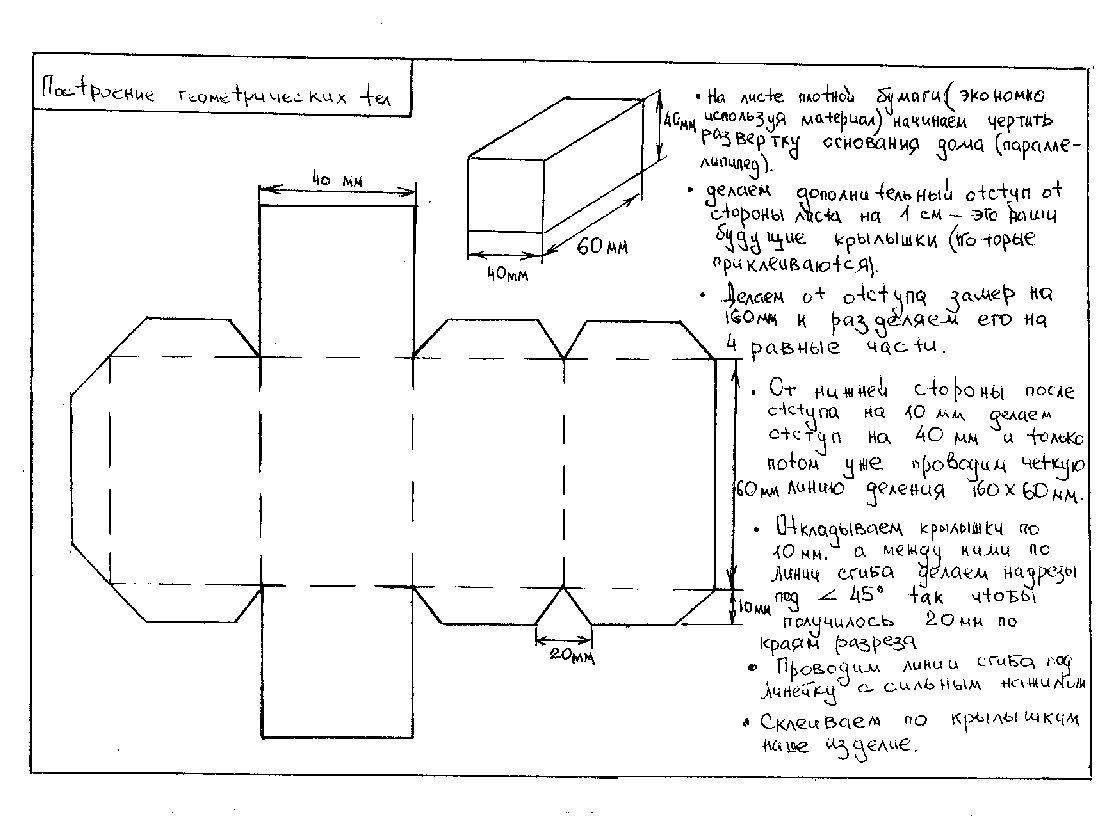 Построение геометрических тел
40 мм
40мм
60мм
40мм
60мм
10мм
20мм
• На листе плотной бумаги (экономно
используя материал) начинаем чертить
развертку основания дома (паралле-
липипед).
• делаем дополнительный отступ от
стороны листа на 1 см – это ваши
будущие крылышки (которые
приклеиваются).
• Делаем от отступа замер на
160мм и разделяем его на
4 равные части.
• От нижней стороны после
отступа на 10 мм делаем
отступ на 40 мм и только
потом уже проводим четкую
линию деления 160х60мм.
• Откладываем крылышки по
10 мм. а между ними по
линии сгиба делаем надрезы
под ∠ 45° так чтобы
получилось 20мм по
краям разреза
• Проводим линии сгиба под
линейку с сильным нажимом
• Склеиваем по крылышкам
наше изделие.